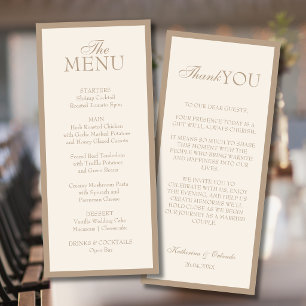 The
MENU
STARTERS
Shrimp Cocktail
Roasted Tomato Soup
MAIN
Herb Roasted Chicken
with Garlic Mashed Potatoes
and Honey Glazed Carrots
Seared Beef Tenderloin
with Truffle Potatoes
and Green Beans
Creamy Mushroom Pasta
with Spinach and
Parmesan Cheese
DESSERT
Vanilla Wedding Cake
Macarons | Cheesecake
DRINKS & COCKTAILS
Open Bar
Thank YOU
TO OUR DEAR GUESTS,
YOUR PRESENCE TODAY IS A
GIFT WE WILL ALWAYS CHERISH.
IT MEANS SO MUCH TO SHARE
THIS MOMENT WITH THE
PEOPLE WHO BRING WARMTH
AND HAPPINESS INTO OUR
LIVES.
WE INVITE YOU TO
CELEBRATE WITH US, ENJOY
THE EVENING, AND HELP US
CREATE MEMORIES WE WILL
HOLD CLOSE AS WE BEGIN
OUR JOURNEY AS A MARRIED
COUPLE.
Katherine & Orlando
26.04.20XX